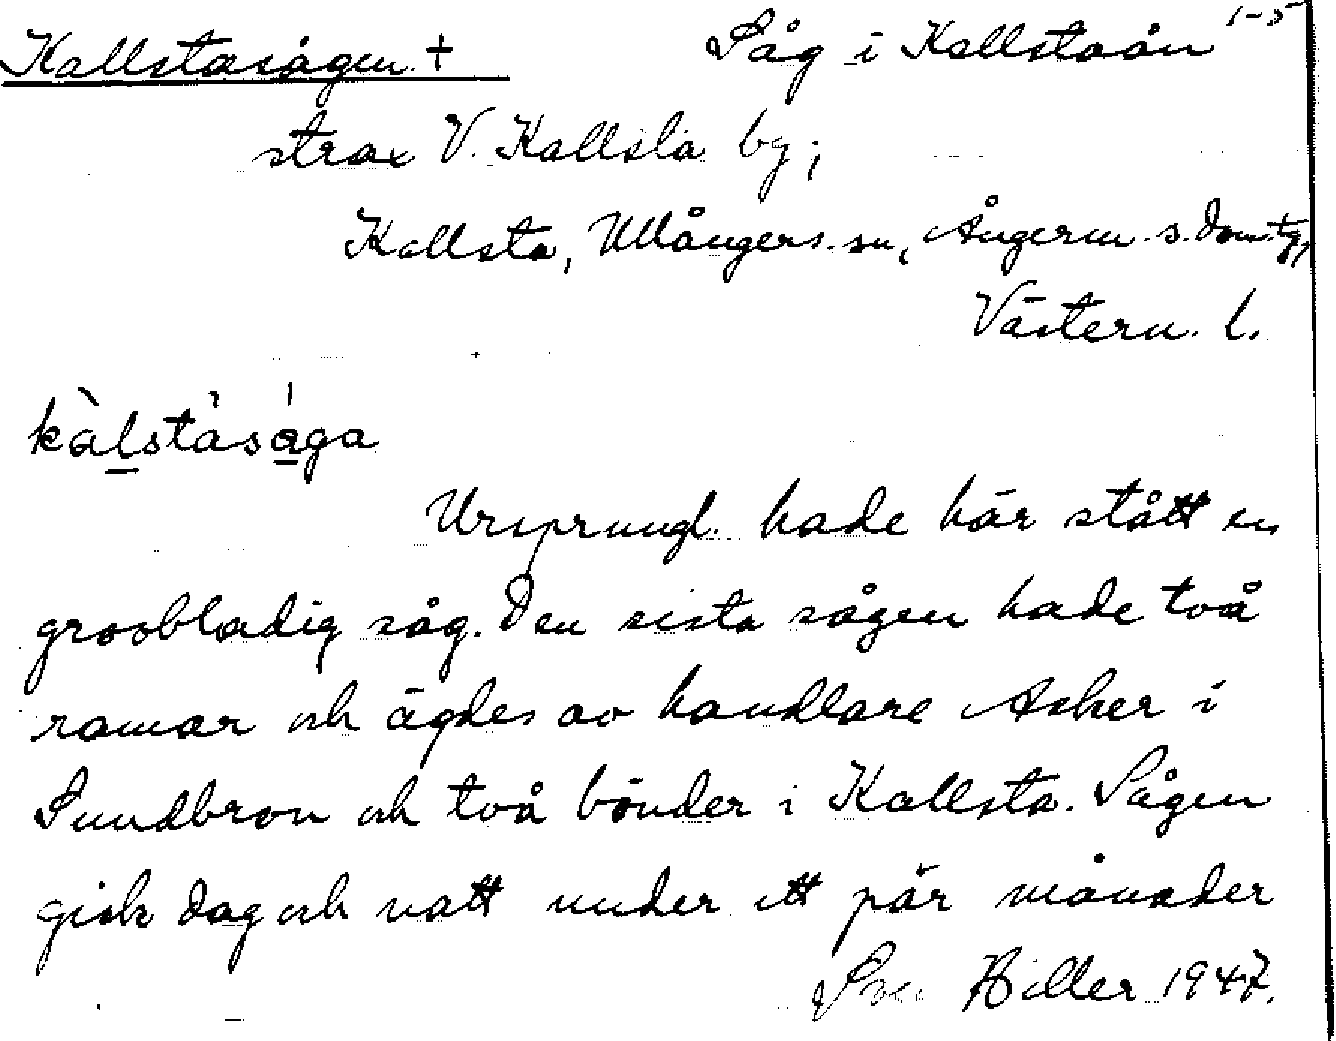 Kallstasågen + Såg i Kallstaån 1-5
strax V. Kallsta by;
Kallsta, Ullångers sn, Ångerm. s. doms.tg,
Västern. l.
kàlstàsága
Ursprungl. hade här stått en
grovbladig såg. Den sista sågen hade två
ramar och ägdes av handlare Asker i
Sundbron och två bönder i Kallsta. Sågen
gick dag och natt under ett pär månader
Hiller 1947.